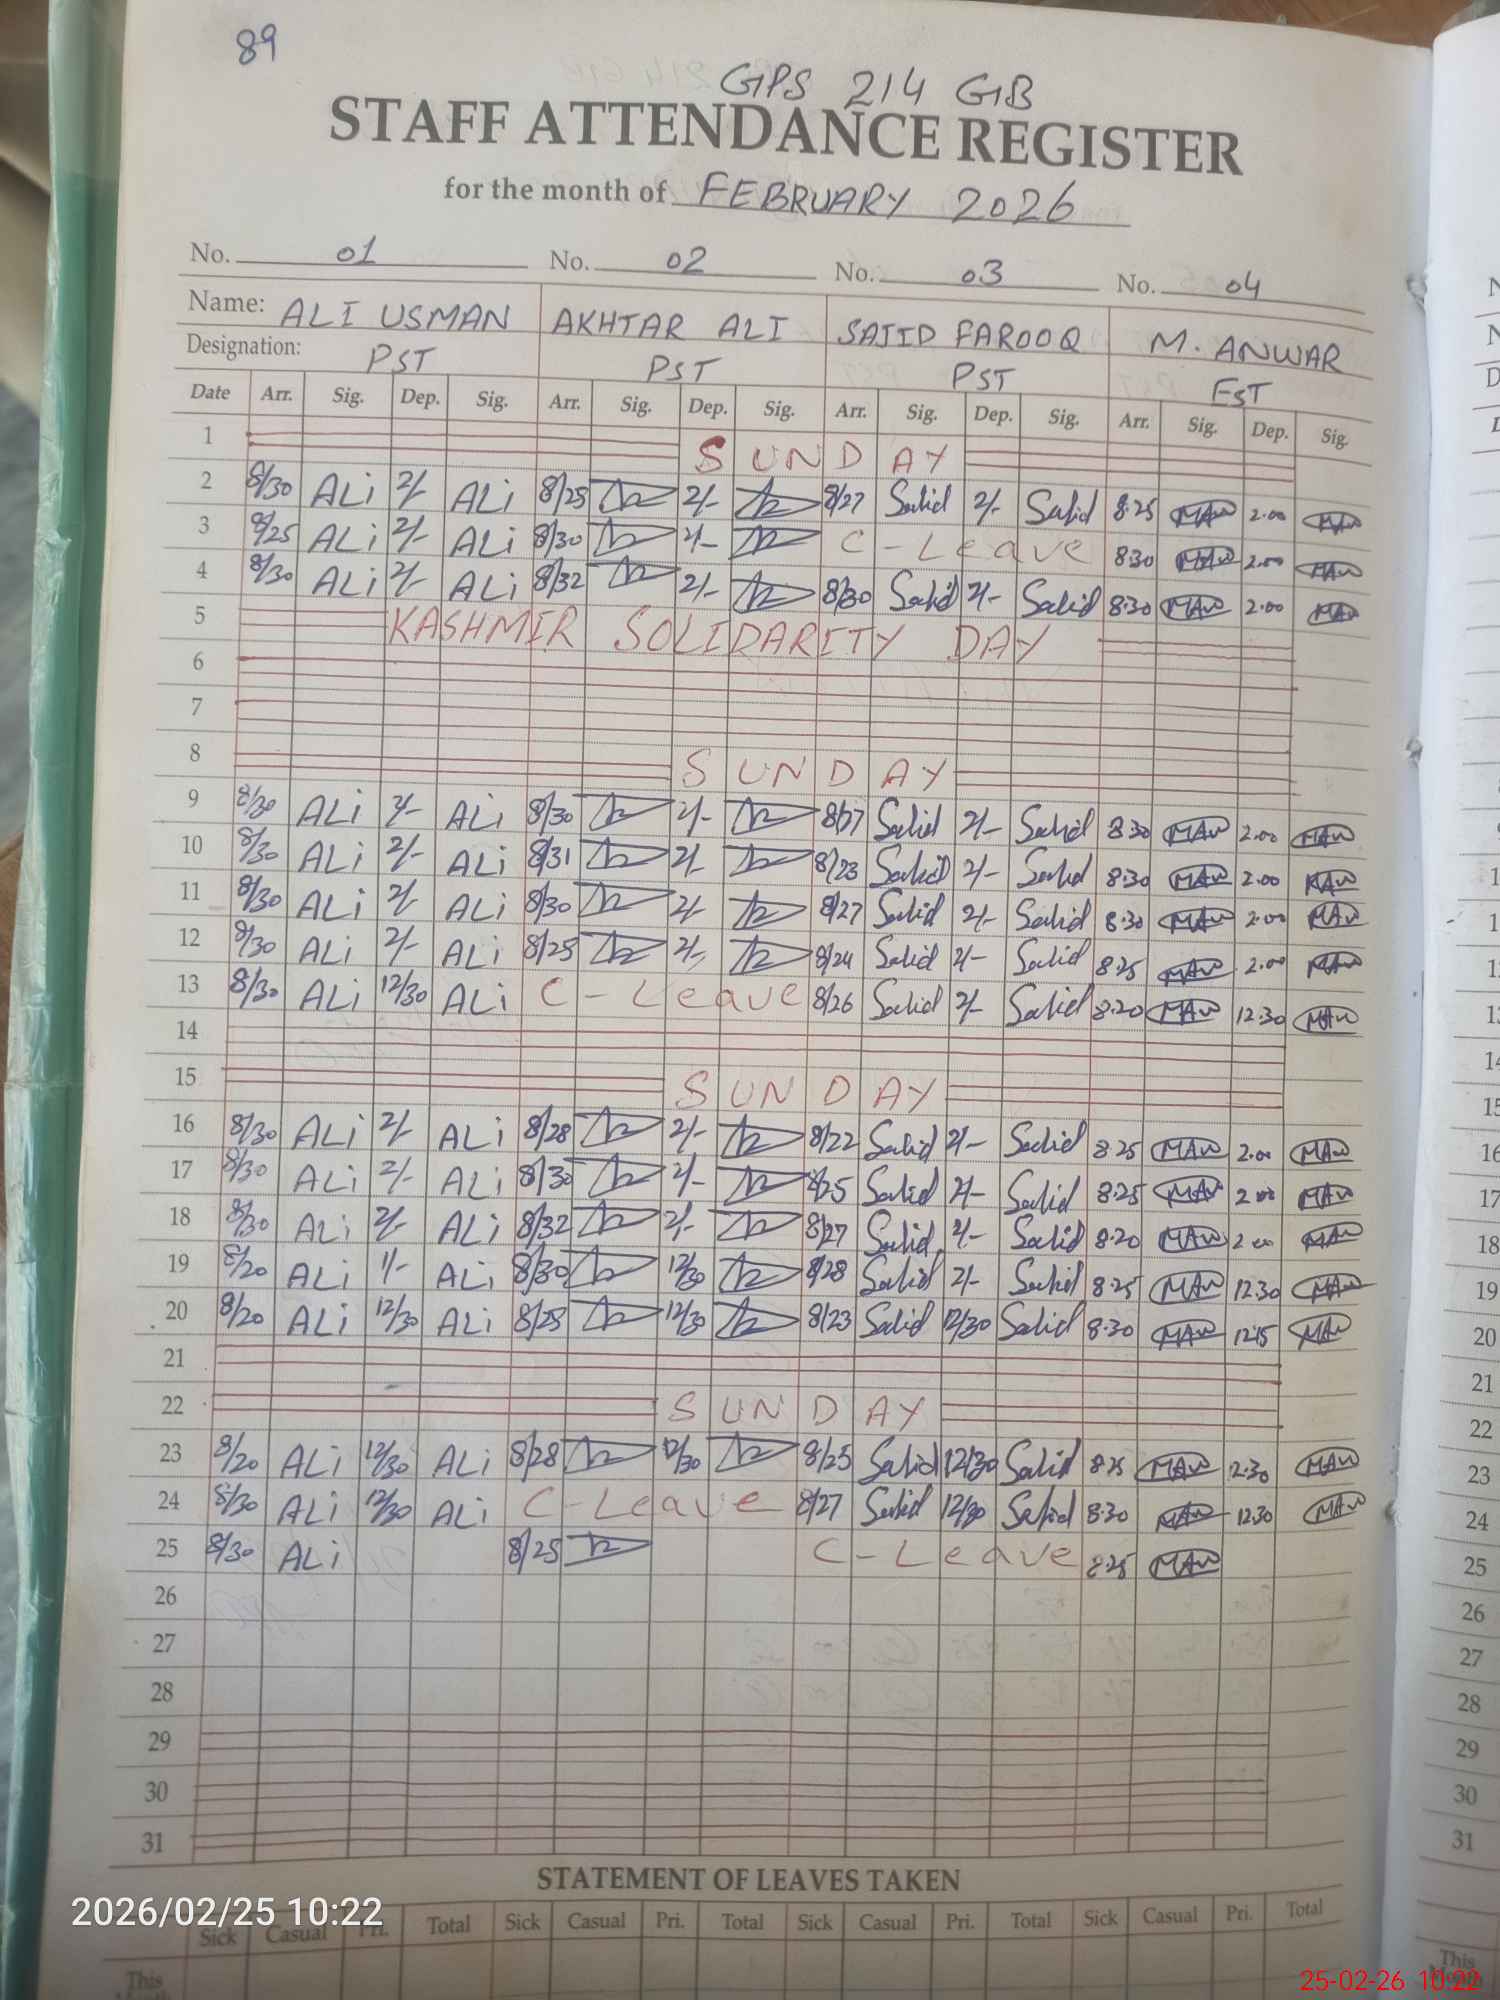 89
GPS 214 GB
STAFF ATTENDANCE REGISTER
for the month of FEBRUARY 2026
No. 01 No. 02 No. 03 No. 04
Name: ALI USMAN AKHTAR ALI SAJID FAROOQ M. ANWAR
Designation: PST PST PST EST
Date Arr. Sig. Dep. Sig. Arr. Sig. Dep. Sig. Arr. Sig. Dep. Sig. Arr. Sig. Dep. Sig.
1 SUNDAY
2 8/30 ALi 2/- ALi 8/25 2/- 8/27 Sajid 2/- Sajid 8.25 MAn 2.00 MAn
3 8/25 ALi 2/- ALi 8/30 2/- C-Leave 8.30 MAn 2.00 MAn
4 8/30 ALi 2/- ALi 8/32 2/- 8/30 Sajid 2/- Sajid 8.30 MAn 2.00 MAn
5 KASHMIR SOLIDARITY DAY
6
7
8 SUNDAY
9 8/30 ALi 2/- ALi 8/30 2/- 8/27 Sajid 2/- Sajid 8.30 MAn 2.00 MAn
10 8/30 ALi 2/- ALi 8/31 2/- 8/23 Sajid 2/- Sajid 8.30 MAn 2.00 MAn
11 8/30 ALi 2/- ALi 8/30 2/- 8/27 Sajid 2/- Sajid 8.30 MAn 2.00 MAn
12 8/30 ALi 2/- ALi 8/25 2/- 8/24 Sajid 2/- Sajid 8.25 MAn 2.00 MAn
13 8/30 ALi 12/30 ALi C-Leave 8/26 Sajid 2/- Sajid 8.20 MAn 12.30 MAn
14
15 SUNDAY
16 8/30 ALi 2/- ALi 8/28 2/- 8/22 Sajid 2/- Sajid 8.25 MAn 2.00 MAn
17 8/30 ALi 2/- ALi 8/30 2/- 8/25 Sajid 2/- Sajid 8.25 MAn 2.00 MAn
18 8/30 ALi 2/- ALi 8/32 2/- 8/27 Sajid 2/- Sajid 8.20 MAn 2.00 MAn
19 8/20 ALi 1/- ALi 8/30 12/30 8/28 Sajid 2/- Sajid 8.25 MAn 12.30 MAn
20 8/20 ALi 12/30 ALi 8/25 12/30 8/23 Sajid 12/30 Sajid 8.30 MAn 12.15 MAn
21
22 SUNDAY
23 8/20 ALi 12/30 ALi 8/28 12/30 8/25 Sajid 12/30 Sajid 8.25 MAn 12.30 MAn
24 8/30 ALi 12/30 ALi C-Leave 8/27 Sajid 12/30 Sajid 8.30 MAn 12.30 MAn
25 8/30 ALi 8/25 C-Leave 8.25 MAn
26
27
28
29
30
31
STATEMENT OF LEAVES TAKEN
Sick Casual Pri. Total Sick Casual Pri. Total Sick Casual Pri. Total Sick Casual Pri. Total
This Month
2026/02/25 10:22
25-02-26 10:22